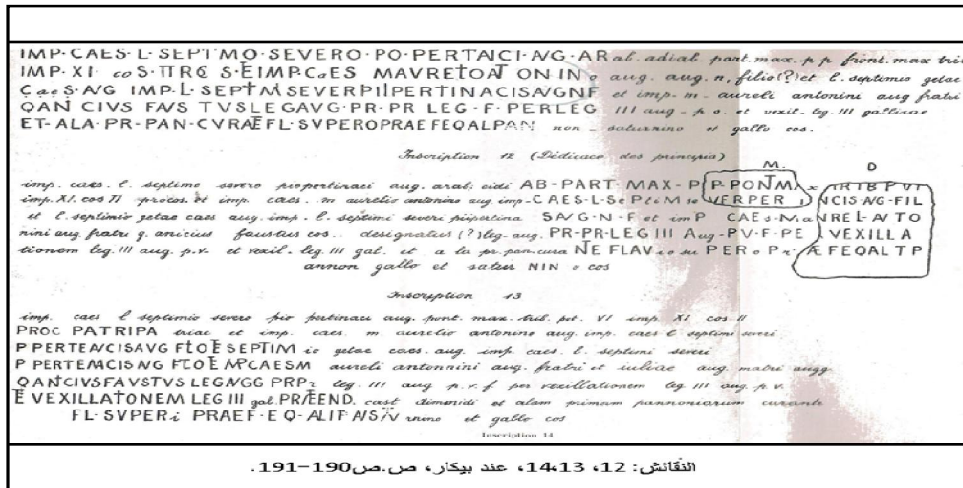 IMP·CAES·L·SEPTMO·SEVERO·PO·PERTAICI·AVG·ARal. adial. part. max. p. p. front. max trib
IMP·XI. coS·ΠRC S·E IMP·CaES MAVRETOAT ONINo aug. aug. n, filio(?) et l. septimio getae
CaeS·AVG IMP·L·SEPTMSEVERPIIPERTINACISAVGNF et imp. m. aureli antonini aug fratri
QAN CIVS FAVS TVSLEGAVG·PR·PR LEG·F·PERLEG III aug. p. o. et vexil. leg. III gallicae
ET·ALA·PR·PAN·CVRAE FL·SVPEROPRAEFEQALPAN non. saturnino et gallo cos.
Inscription 12 (Dédicace des principia)
M. D
imp. caes. l. septimo severo piopertinaci aug. arab. eidi AB-PART·MAX-P P-PONTMx TRIBPVI
imp. XI. cos II procos. et imp. caes. m aurelio antonino aug imp-CAES-L-SEPtiMSeVERPER NCISAVG-FIL
et l. septimio getae caes aug. imp. l. septimi severi piipertina SAVG-N-F et imP CAEs-MaNREL-AVTO
nini aug. fratri q. anicius faustus cos. designatus (?) leg. aug. PR-PR-LEG III Aug-PV-F-PE VEXILLA
tionem leg. III aug. p.v. et vexil. leg. III gal. et a la pr. pan. cura NE FLAVio su PERo Pr ÆFEQALTP
annon gallo et satur NIN o cos
Inscription 13
imp. caes l septimio severo pio pertinaci aug. pont. max. trib. pot. VI imp. XI cos. II
PROC PATRIPA triae et imp. caes. m aurelio antonino aug. imp. caes l septimi severi
P PERTEACISAVG FLOE SEPTIM io getae caes. aug. imp. caes. l. septimi severi
P PERTEMCISAVG FLOE MPCAESM aureli antonnini aug. fratri et iuliae aug. matri augg
QANCIVSFAVSTVS LEGAVGG PRPr leg. III aug p.v.f per vexillationem leg III aug. p.v.
E VEXILLATONEM LEG III gal. PRÆEND. cast dimmidi et alam primam pannoniorum curante
FL·SVPERi PRAEF·EQ-ALIFANSAV rnino et gallo cos
Inscription 14
النقائش: 12، 14،13، عند بيكار، ص.ص190-191.